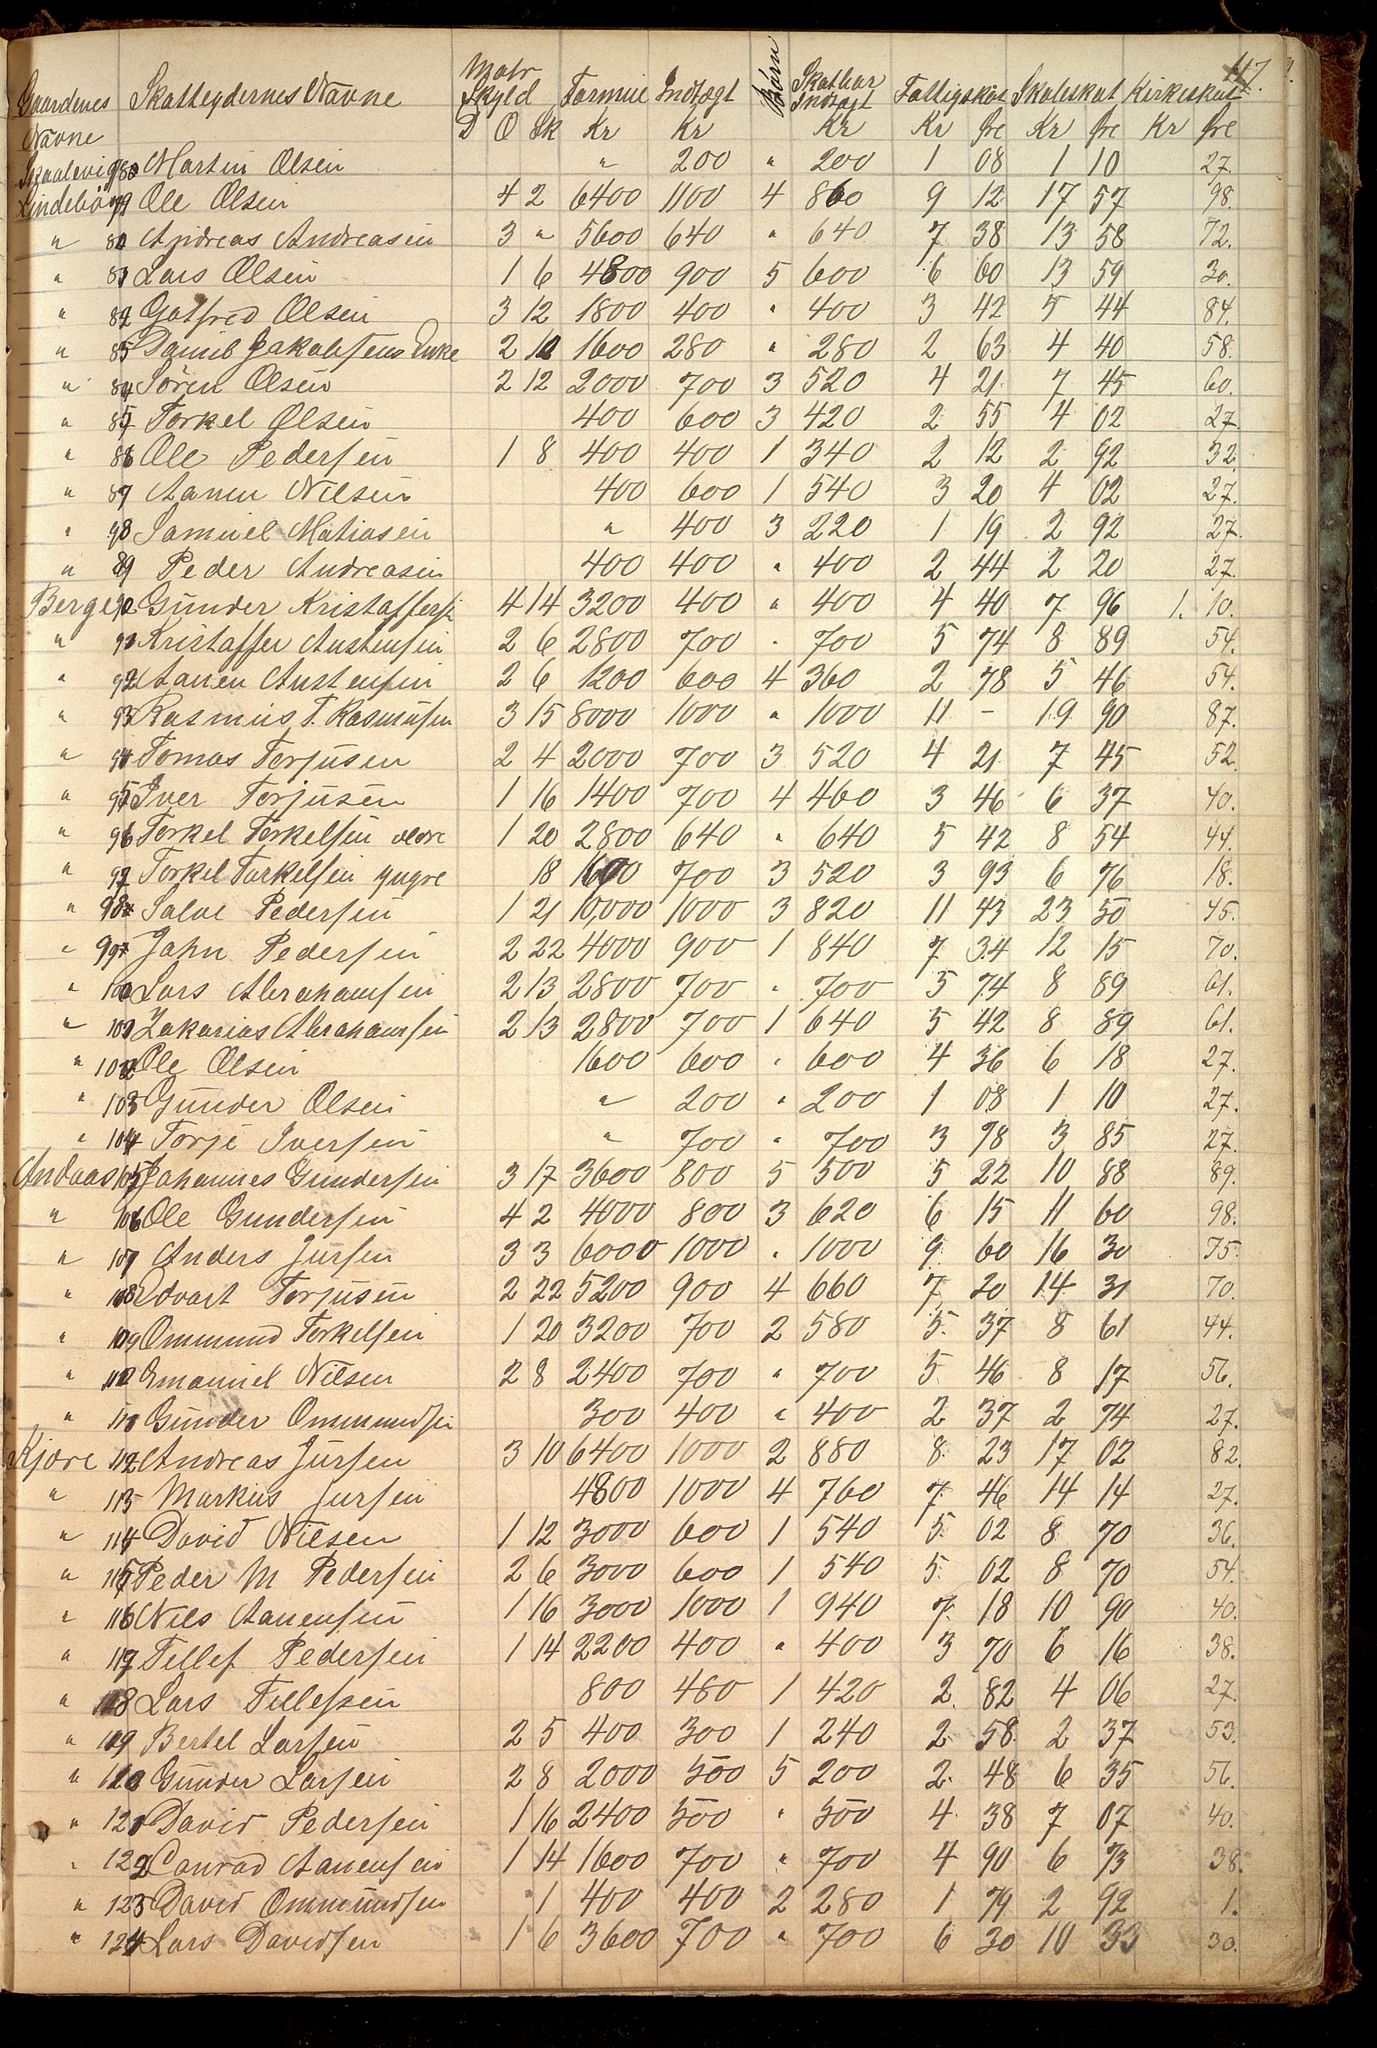 117.
Gaardenes Skatteydernes Navne Matr Formue Indtægt Børn Skatbar Fattigskat Skoleskat Kirkeskat
Navne Skyld Indtægt
D O Sk Kr Kr Kr Kr Øre Kr Øre Kr Øre
Martin Olsen " 200 " 200 1 08 1 10 27.
Lindebö 79 Ole Olsen 4 2 6400 1100 4 860 9 12 17 57 98.
" 80 Andreas Andreasen 3 " 5600 640 " 640 7 38 13 58 72.
" 81 Lars Olsen 1 6 4800 900 5 600 6 60 13 59 30.
" 82 Gotfred Olsen 3 12 1800 400 " 400 3 42 5 44 84.
" 83 Daniel Jakobsens Enke 2 10 1600 280 " 280 2 63 4 40 58.
" 84 Sören Olsen 2 12 2000 700 3 520 4 21 7 45 60.
" 85 Torkel Olsen 400 600 3 420 2 55 4 02 27.
" 86 Ole Pedersen 1 8 400 400 1 340 2 12 2 92 32.
" 87 Aanen Nilsen 400 600 1 540 3 20 4 02 27.
" 98 Samuel Matiasen " 400 3 220 1 19 2 92 27.
" 89 Peder Andreasen 400 400 " 400 2 44 2 20 27.
Berge 90 Gunder Kristoffersen 4 14 3200 400 " 400 4 40 7 96 1. 10.
" 91 Kristoffer Austensen 2 6 2800 700 " 700 5 74 8 89 54.
" 92 Aanen Austensen 2 6 1200 600 4 360 2 78 5 46 54.
" 93 Rasmus T. Rasmusen 3 15 8000 1000 " 1000 11 - 19 90 87.
" 94 Tomas Torjusen 2 4 2000 700 3 520 4 21 7 45 52.
" 95 Iver Torjusen 1 16 1400 700 4 460 3 46 6 37 40.
" 96 Torkel Torkelsen eldre 1 20 2800 640 " 640 5 42 8 54 44.
" 97 Torkel Torkelsen yngre 18 1600 700 3 520 3 93 6 76 18.
" 98 Salve Pedersen 1 21 10,000 1000 3 820 11 43 23 50 45.
" 99 John Pedersen 2 22 4000 900 1 840 7 34 12 15 70.
" 100 Lars Abrahamsen 2 13 2800 700 " 700 5 74 8 89 61.
" 101 Zakarias Abrahamsen 2 13 2800 700 1 640 5 42 8 89 61.
" 102 Ole Olsen 1600 600 " 600 4 36 6 18 27.
" 103 Gunder Olsen " 200 " 200 1 08 1 10 27.
" 104 Torje Iversen " 700 " 700 3 78 3 85 27.
Andaas 105 Johannes Gundersen 3 17 3600 800 5 500 5 22 10 88 89.
" 106 Ole Gundersen 4 2 4000 800 3 620 6 15 11 60 98.
" 107 Anders Jursen 3 3 6000 1000 " 1000 9 60 16 30 75.
" 108 Edvart Torjusen 2 22 5200 900 4 660 7 20 14 31 70.
" 109 Ommund Torkelsen 1 20 3200 700 2 580 5 37 8 61 44.
" 110 Emanuel Nilsen 2 8 2400 700 " 700 5 46 8 17 56.
" 111 Gunder Ommundsen 300 400 " 400 2 37 2 74 27.
Kjøre 112 Andreas Jursen 3 10 6400 1000 2 880 8 23 17 02 82.
" 113 Markus Jursen 4800 1000 4 760 7 46 14 14 27.
" 114 David Nilsen 1 12 3000 600 1 540 5 02 8 70 36.
" 115 Peder M Pedersen 2 6 3000 600 1 540 5 02 8 70 54.
" 116 Nils Aanensen 1 16 3000 1000 1 940 7 18 10 90 40.
" 117 Tellef Pedersen 1 14 2200 400 " 400 3 70 6 16 38.
" 118 Lars Tellefsen 800 480 1 420 2 82 4 06 27.
" 119 Bertel Larsen 2 5 400 300 1 240 2 58 2 37 53.
" 120 Gunder Larsen 2 8 2000 500 5 200 2 48 6 35 56.
" 121 David Pedersen 1 16 2400 500 " 500 4 38 7 07 40.
" 122 Conrad Aanensen 1 14 1600 700 " 700 4 90 6 73 38.
" 123 David Ommundsen 1 400 400 2 280 1 79 2 92 1.
" 124 Lars Davidsen 1 6 3600 700 " 700 6 30 10 33 30.